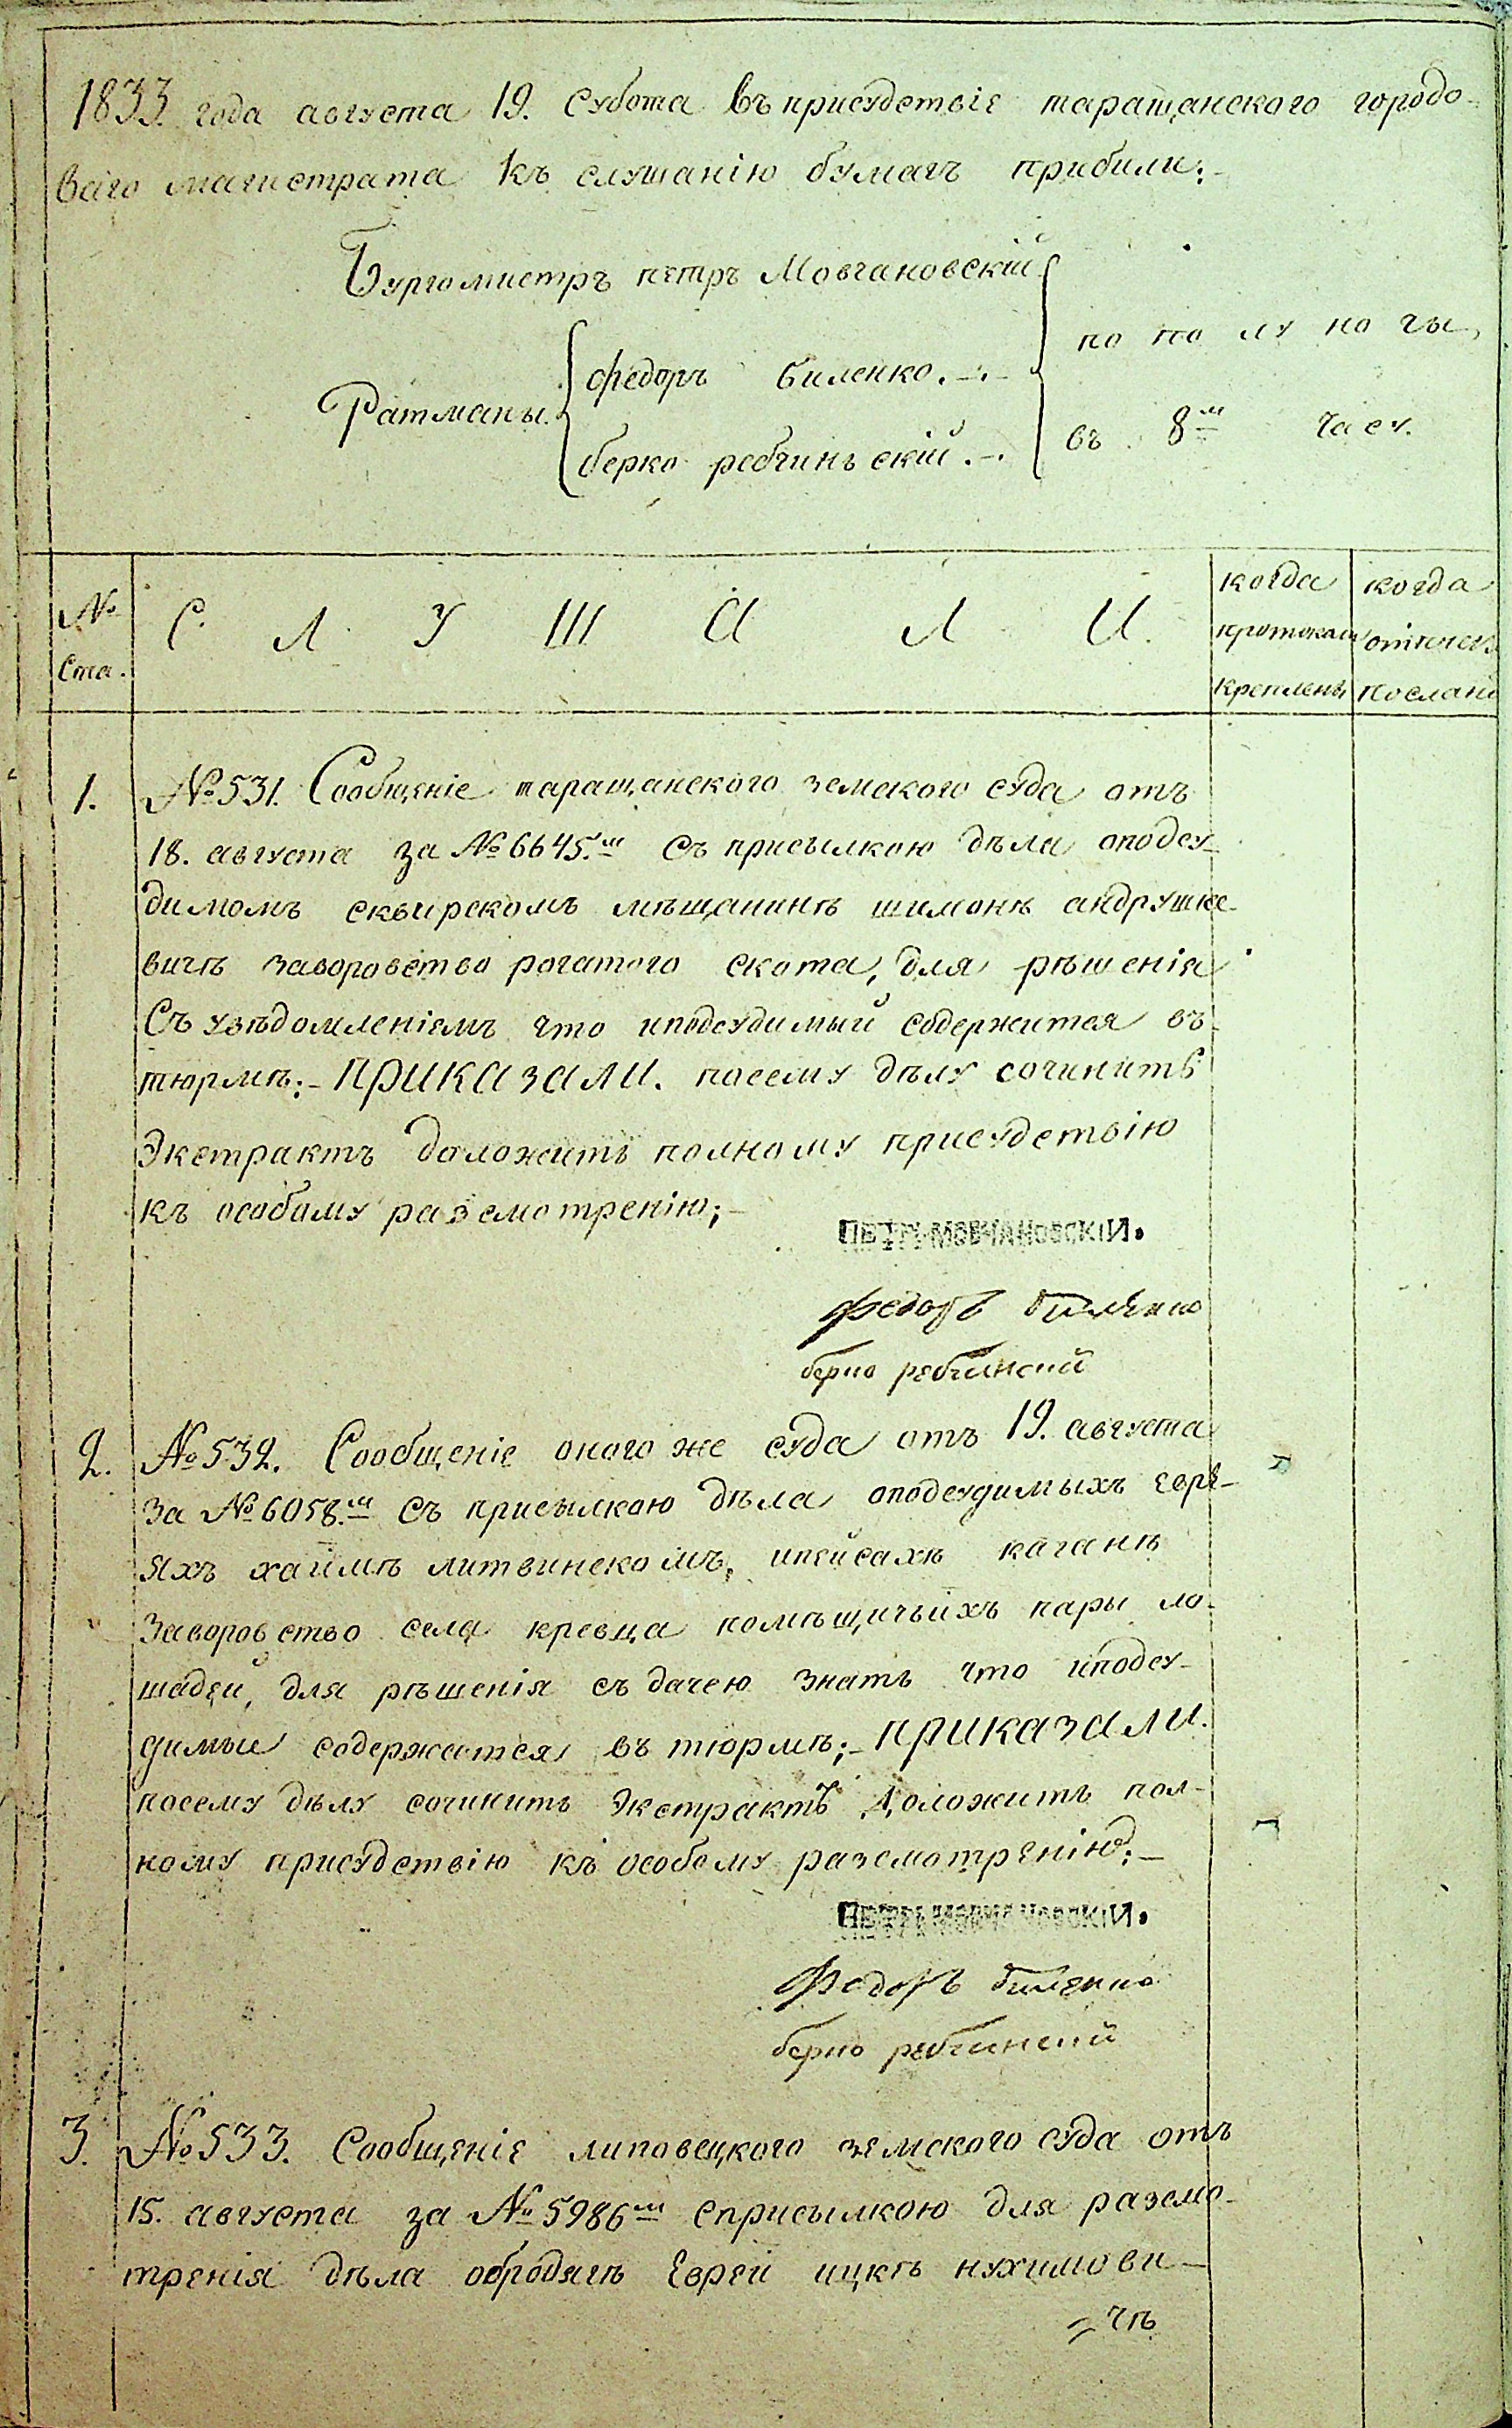 1833. года августа 19. субота въ присудствіе таращанского городо-
ваго магистрата къ слушанію бумагъ прибили:-
Бургомистръ петръ Мовчановскій
федоръ биленко.-.-
по полу ночы,
Ратманы.
берко ребчинъскій.-.
въ 8м часу.
№ ста.
С Л У Ш А Л И.
когда протоколы креплены
когда отпуск послано
1. №531. Сообщеніе таращанского земского суда отъ
18. августа за №6645.м съ присылкою дѣла оподсу-
димомъ сквирскомъ мѣщанинѣ шимонѣ андрушке-
вичѣ заворовство рогатого скота, для рѣшенія
Съ увѣдомленіемъ что иподсудимый содержится въ
тюрмѣ:- приказали. посему дѣлу сочинить
Экстрактъ доложить полному присудствію
къ особому разсмотренію;-
ПЕТРЪ МОВЧАНОВСКІЙ.
федоръ биленко
берко ребчинскій
2. №532. Сообщеніе оного же суда отъ 19. августа
за №6058.м съ присылкою дѣла оподсудимыхъ евре-
яхъ хаимѣ литвинскомъ, ипейсахѣ каганѣ
Заворовство села кревца помѣщичьихъ пары ло-
шадей, для рѣшенія съ дачею знать что иподсу-
димые содержатся въ тюрмѣ;- приказали.
посему дѣлу сочинить Экстрактъ Доложить пол-
ному присудствію къ особому разсмотренію:-
ПЕТРЪ МОВЧАНОВСКІЙ.
Федоръ биленко
берко ребчинскій
3. №533. Сообщеніе липовецкого земского суда отъ
15. августа за №5986м сприсылкою для разсмо-
тренія дѣла обродягѣ Еврей ицкѣ нухимови-
=чѣ